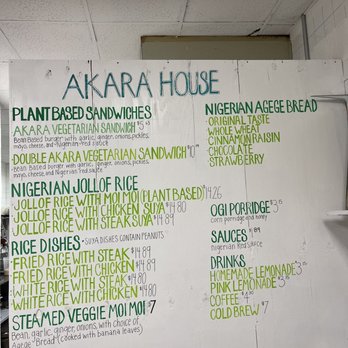 AKARA HOUSE
PLANT BASED SANDWICHES
AKARA VEGETARIAN SANDWICH $5
Bean Based burger with garlic, ginger, onions, pickles,
mayo, cheese, and Nigerian red sauce
DOUBLE AKARA VEGETARIAN SANDWICH $10
Bean Based burger, garlic, ginger, onions, pickles,
mayo, cheese, and Nigerian red sauce
NIGERIAN JOLLOF RICE
JOLLOF RICE WITH MOI MOI (PLANT BASED) $14.26
JOLLOF RICE WITH CHICKEN SUYA $14.80
JOLLOF RICE WITH STEAK SUYA $14.89
RICE DISHES *SUYA DISHES CONTAIN PEANUTS
FRIED RICE WITH STEAK $14.89
FRIED RICE WITH CHICKEN $14.89
WHITE RICE WITH STEAK $14.80
WHITE RICE WITH CHICKEN $14.80
STEAMED VEGGIE MOI MOI $7
Bean, garlic, ginger, onions, with choice of
Agege "Bread" (cooked with banana leaves)
NIGERIAN AGEGE BREAD
ORIGINAL TASTE
WHOLE WHEAT
CINNAMON RAISIN
CHOCOLATE
STRAWBERRY
OGI PORRIDGE $3
corn porridge and honey
SAUCES
nigerian red sauce
DRINKS
HOMEMADE LEMONADE 3
PINK LEMONADE 3
COFFEE
COLD BREW $7